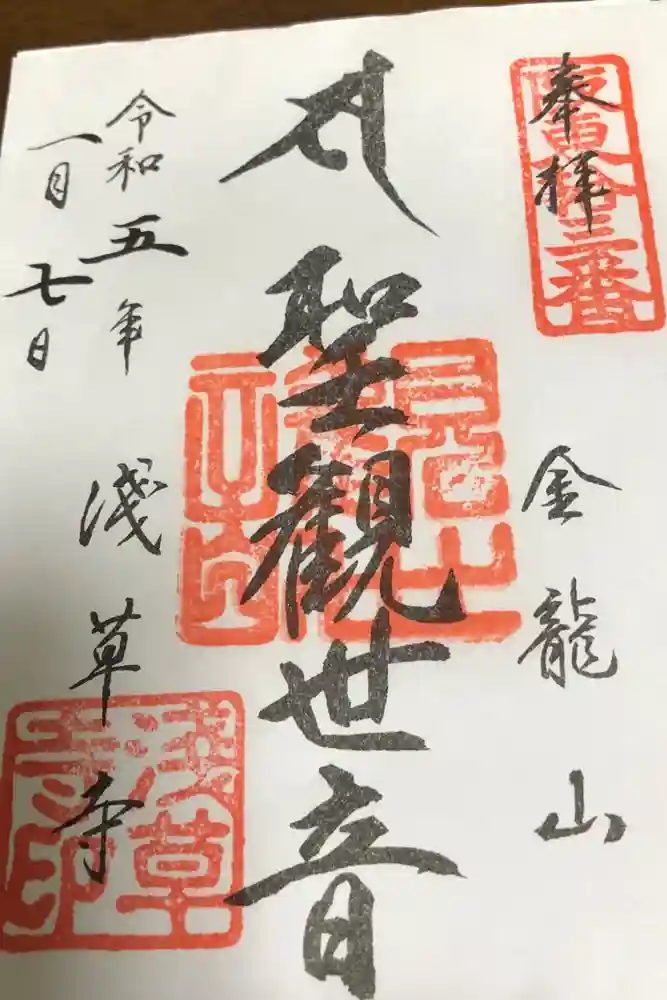 奉拝
坂東拾三番
金龍山
聖観世音
令和五年
一月七日
浅草寺
浅草寺印